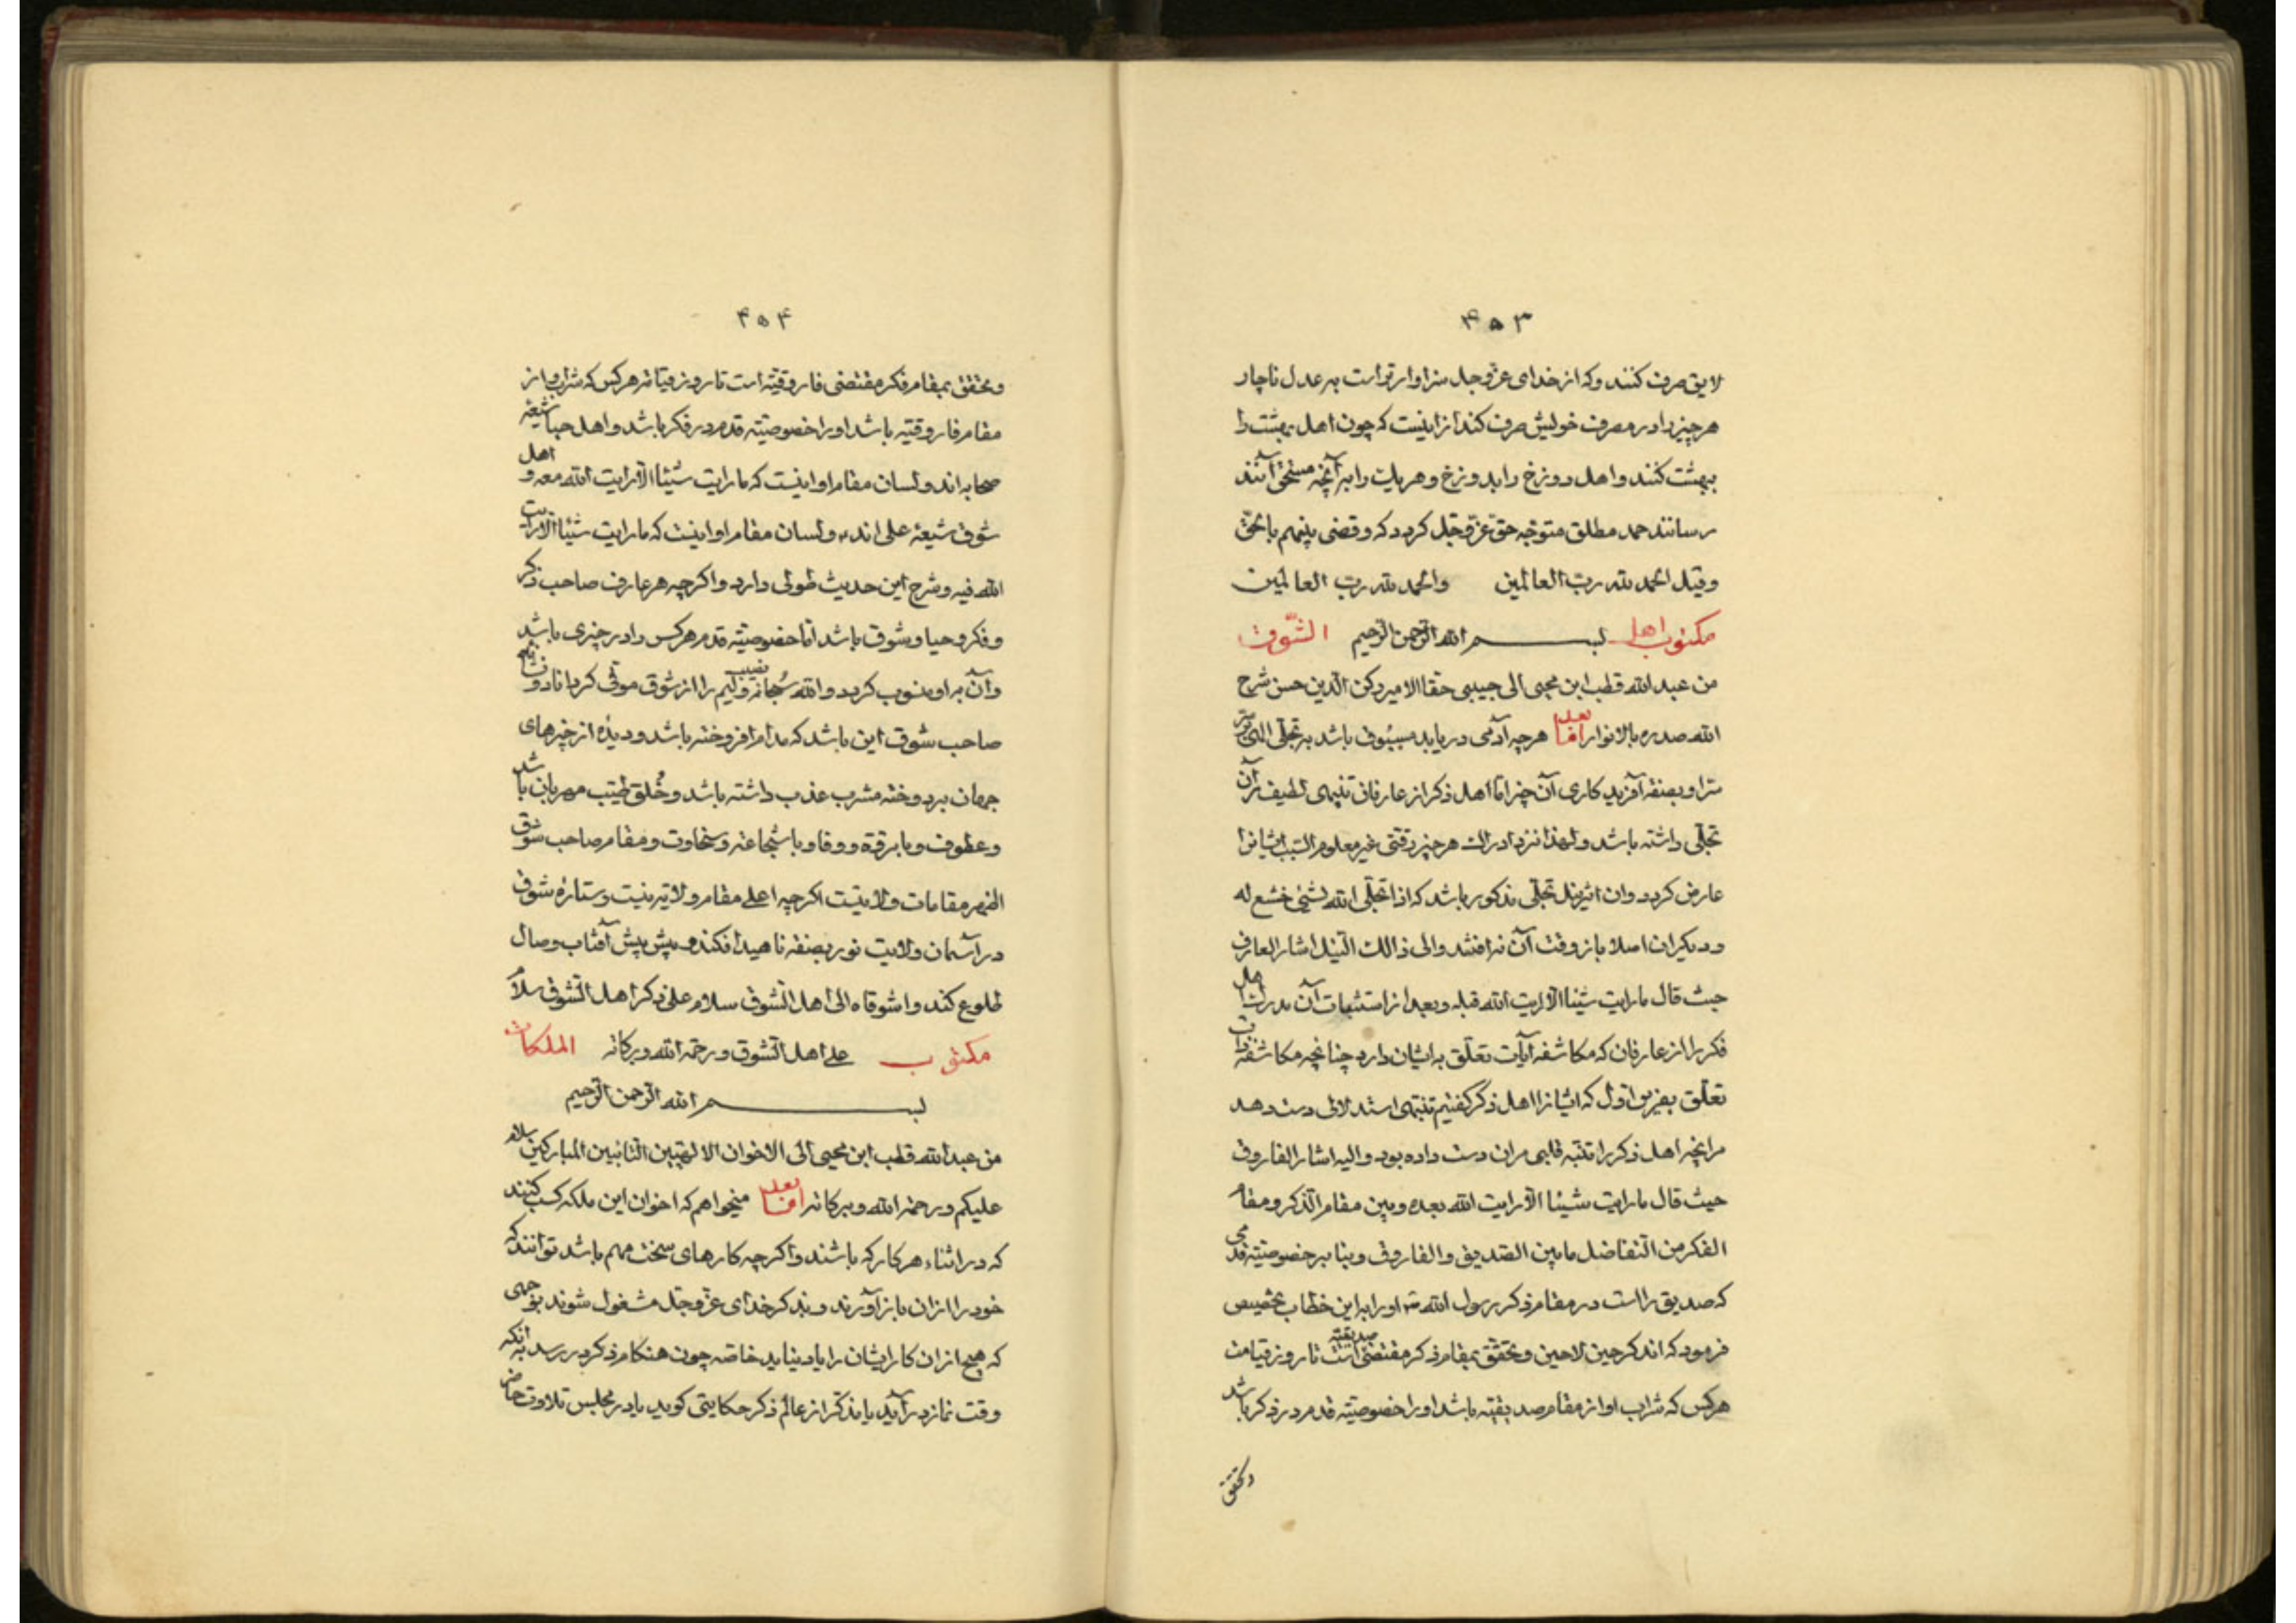 ۴۵۳
لایق صرف کنند وکه از خدای عزوجل سزاوارتر است به عدل ناچار
هر چیز را در مصرف خویش صرف کند از اینست که چون اهل بهشت را
ببهشت کنند و اهل دوزخ را بدوزخ و هر یک را به آنچه مستحق آنند
رسانند حمد مطلق متوجه حق عزوجل کردد که وقضی بینهم بالحق
وقیل الحمد لله رب العالمین والحمد لله رب العالمین
مکتوب اهل بسم الله الرحمن الرحیم الشوق
من عبد الله قطب ابن محیی الی حبیبی حقا الامیر رکن الدین حسن شرح
الله صدره بالانوار اما بعد هرچه آدمی دریابد مسبوق باشد به تجلی الهی
مر او بصفة آفریدکاری آن چیز اما اهل ذکر از عارفان تنبهی لطیف بر آن
تجلی داشته باشد ولهذا نزد ادراک هر چیز رقتی غیر معلوم السبب ایشانرا
عارض کردد وان اثر نیل تجلی مذکور باشد که اذا تجلی الله لشیئ خشع له
ودیکران اصلا باز وقت آن نه افتند والی ذالک النیل اشار العارف
حیث قال ما رایت شیئا الا رایت الله قبله وبعد از استثبات آن مدرک اهل
فکر را از عارفان که مکاشفه آیات تعلق به ایشان دارد چنانچه مکاشفه ذات
تعلق بفریق اول که ایشانرا اهل ذکر گفتیم تنبهی استدلالی دست دهد
مرانچه اهل ذکر را تنبه قلبی مران دست داده بود والیه اشار الفاروق
حیث قال ما رایت شیئا الا رایت الله بعده وبین مقام الذکر ومقام
الفکر من التفاضل ما بین الصدیق والفاروق وبنا بر خصوصیته قدمی
که صدیق راست در مقام ذکر رسول الله ص او را به این خطاب تخصیص
فرمود که اذکر حین لا حین وتحقق بمقام ذکر مقتضی صدیقیته است تا روز قیامت
هر کس که شراب او از مقام صدیقیته باشد او را خصوصیته قدم در ذکر باشد
وتحقق
۴۵۴
وتحقق بمقام فکر مقتضی فاروقیته است تا روز قیامة هر کس که شراب او از
مقام فاروقیته باشد او را خصوصیته قدم در فکر باشد و اهل حیا شیعه
صحابه اند ولسان مقام او اینست که ما رایت شیئا الا رایت الله معه و اهل
شوق شیعه علی اند ولسان مقام او اینست که ما رایت شیئا الا رایت
الله فیه وشرح این حدیث طولی دارد و اکرچه هر عارف صاحب ذکر
وفکر و حیا و شوق باشد اما خصوصیته قدم هر کس را در چیزی باشد
وآن به او منسوب کردد والله سبحانه ولیم را از شوق نصیب موفی کرداناد ونشانه
صاحب شوق این باشد که مدام افروخته باشد ودیده از چیزهای
جهان بردوخته مشرب عذب داشته باشد وخلق طیب مهربان باشد
وعطوف وبا برقة ووفا وبا شجاعة وسخاوت ومقام صاحب شوق
مقامات ولایتست اکرچه اعلی مقام ولایة نیست وستاره شوق
در آسمان ولایت نور بصفة ناهید افکند و پیش پیش آفتاب وصال
طلوع کند واشوقاه الی اهل الشوق سلام علی ذکر اهل الشوق سلام
مکتوب علی اهل الشوق ورحمة الله وبرکاته الملکات
بسم الله الرحمن الرحیم
من عبد الله قطب ابن محیی الی الاخوان الالهیین التائبین المبارکین سلام
علیکم ورحمة الله وبرکاته اما بعد میخواهم که اخوان این ملکه کسب کنند
که در اثناء هر کار که باشند واکرچه کارهای سخت مهم باشد توانند که
خود را از آن باز آورند وبذکر خدای عزوجل مشغول شوند بوجهی
که هیچ از آن کار ایشان را یاد نیاید خاصه چون هنکام ذکر در رسد به آنکه
وقت نماز در آید یا مذکر از عالم ذکر حکایتی کوید یا در مجلس تلاوت حاضر